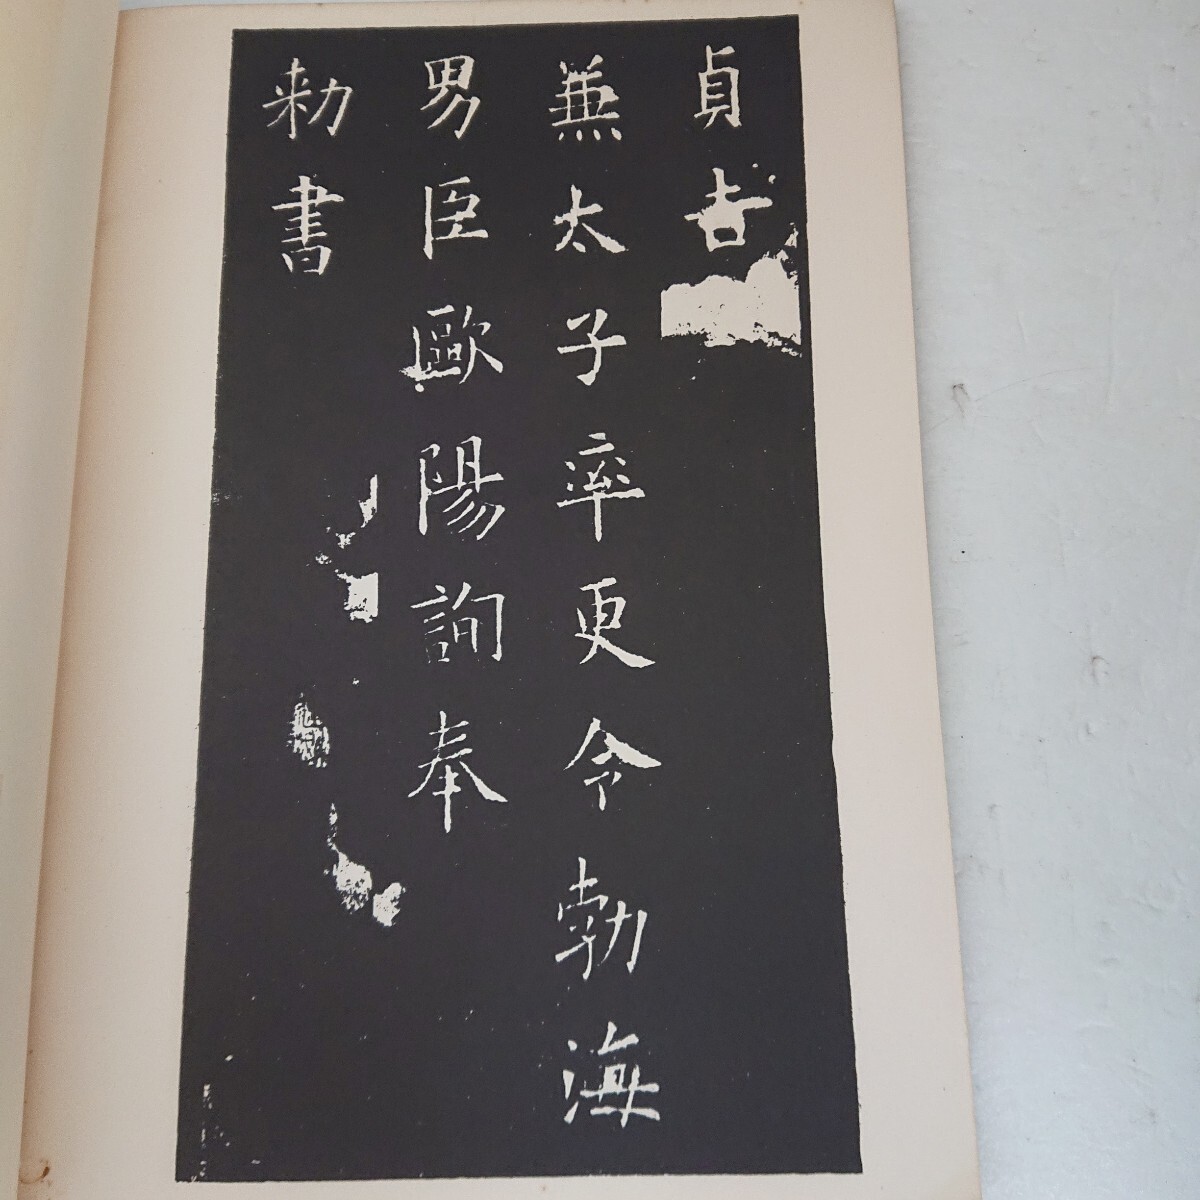 貞吉
兼太子率更令勃海
男臣歐陽詢奉
勑書